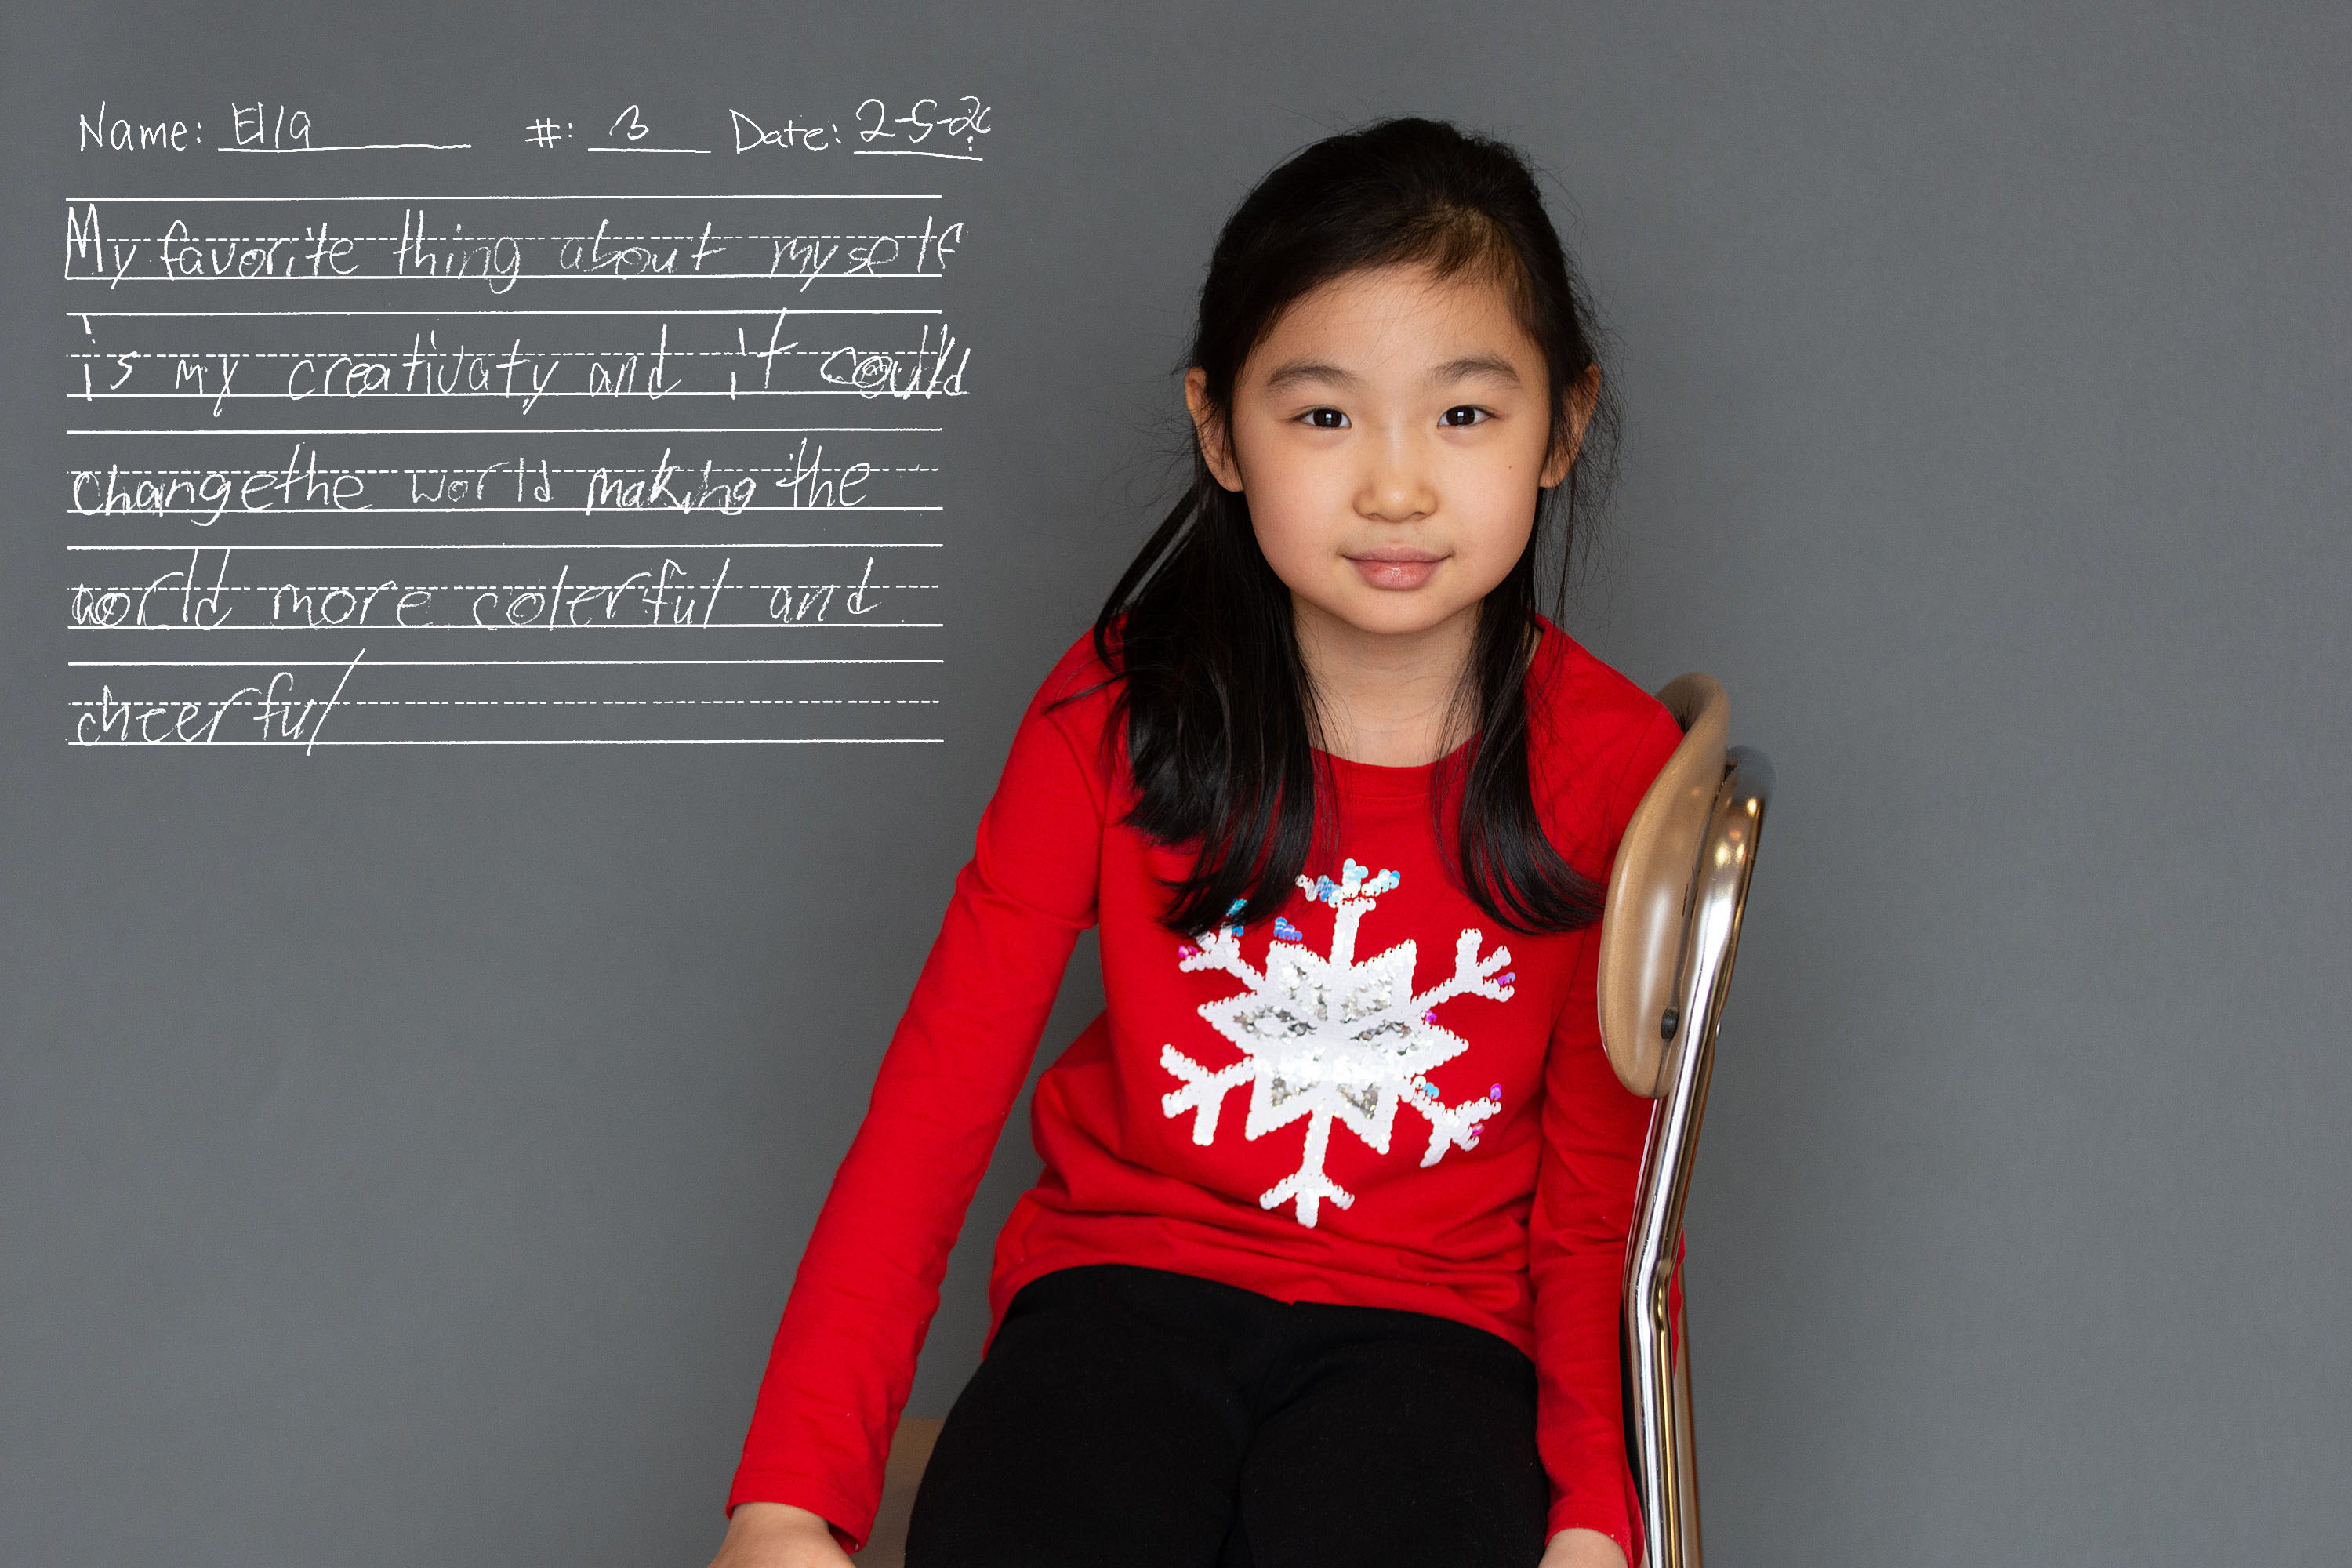 Name: Ella #: 3 Date: 2-5-20
My favorite thing about myself
is my creativaty and it could
changethe world making the
world more colerful and
cheerful